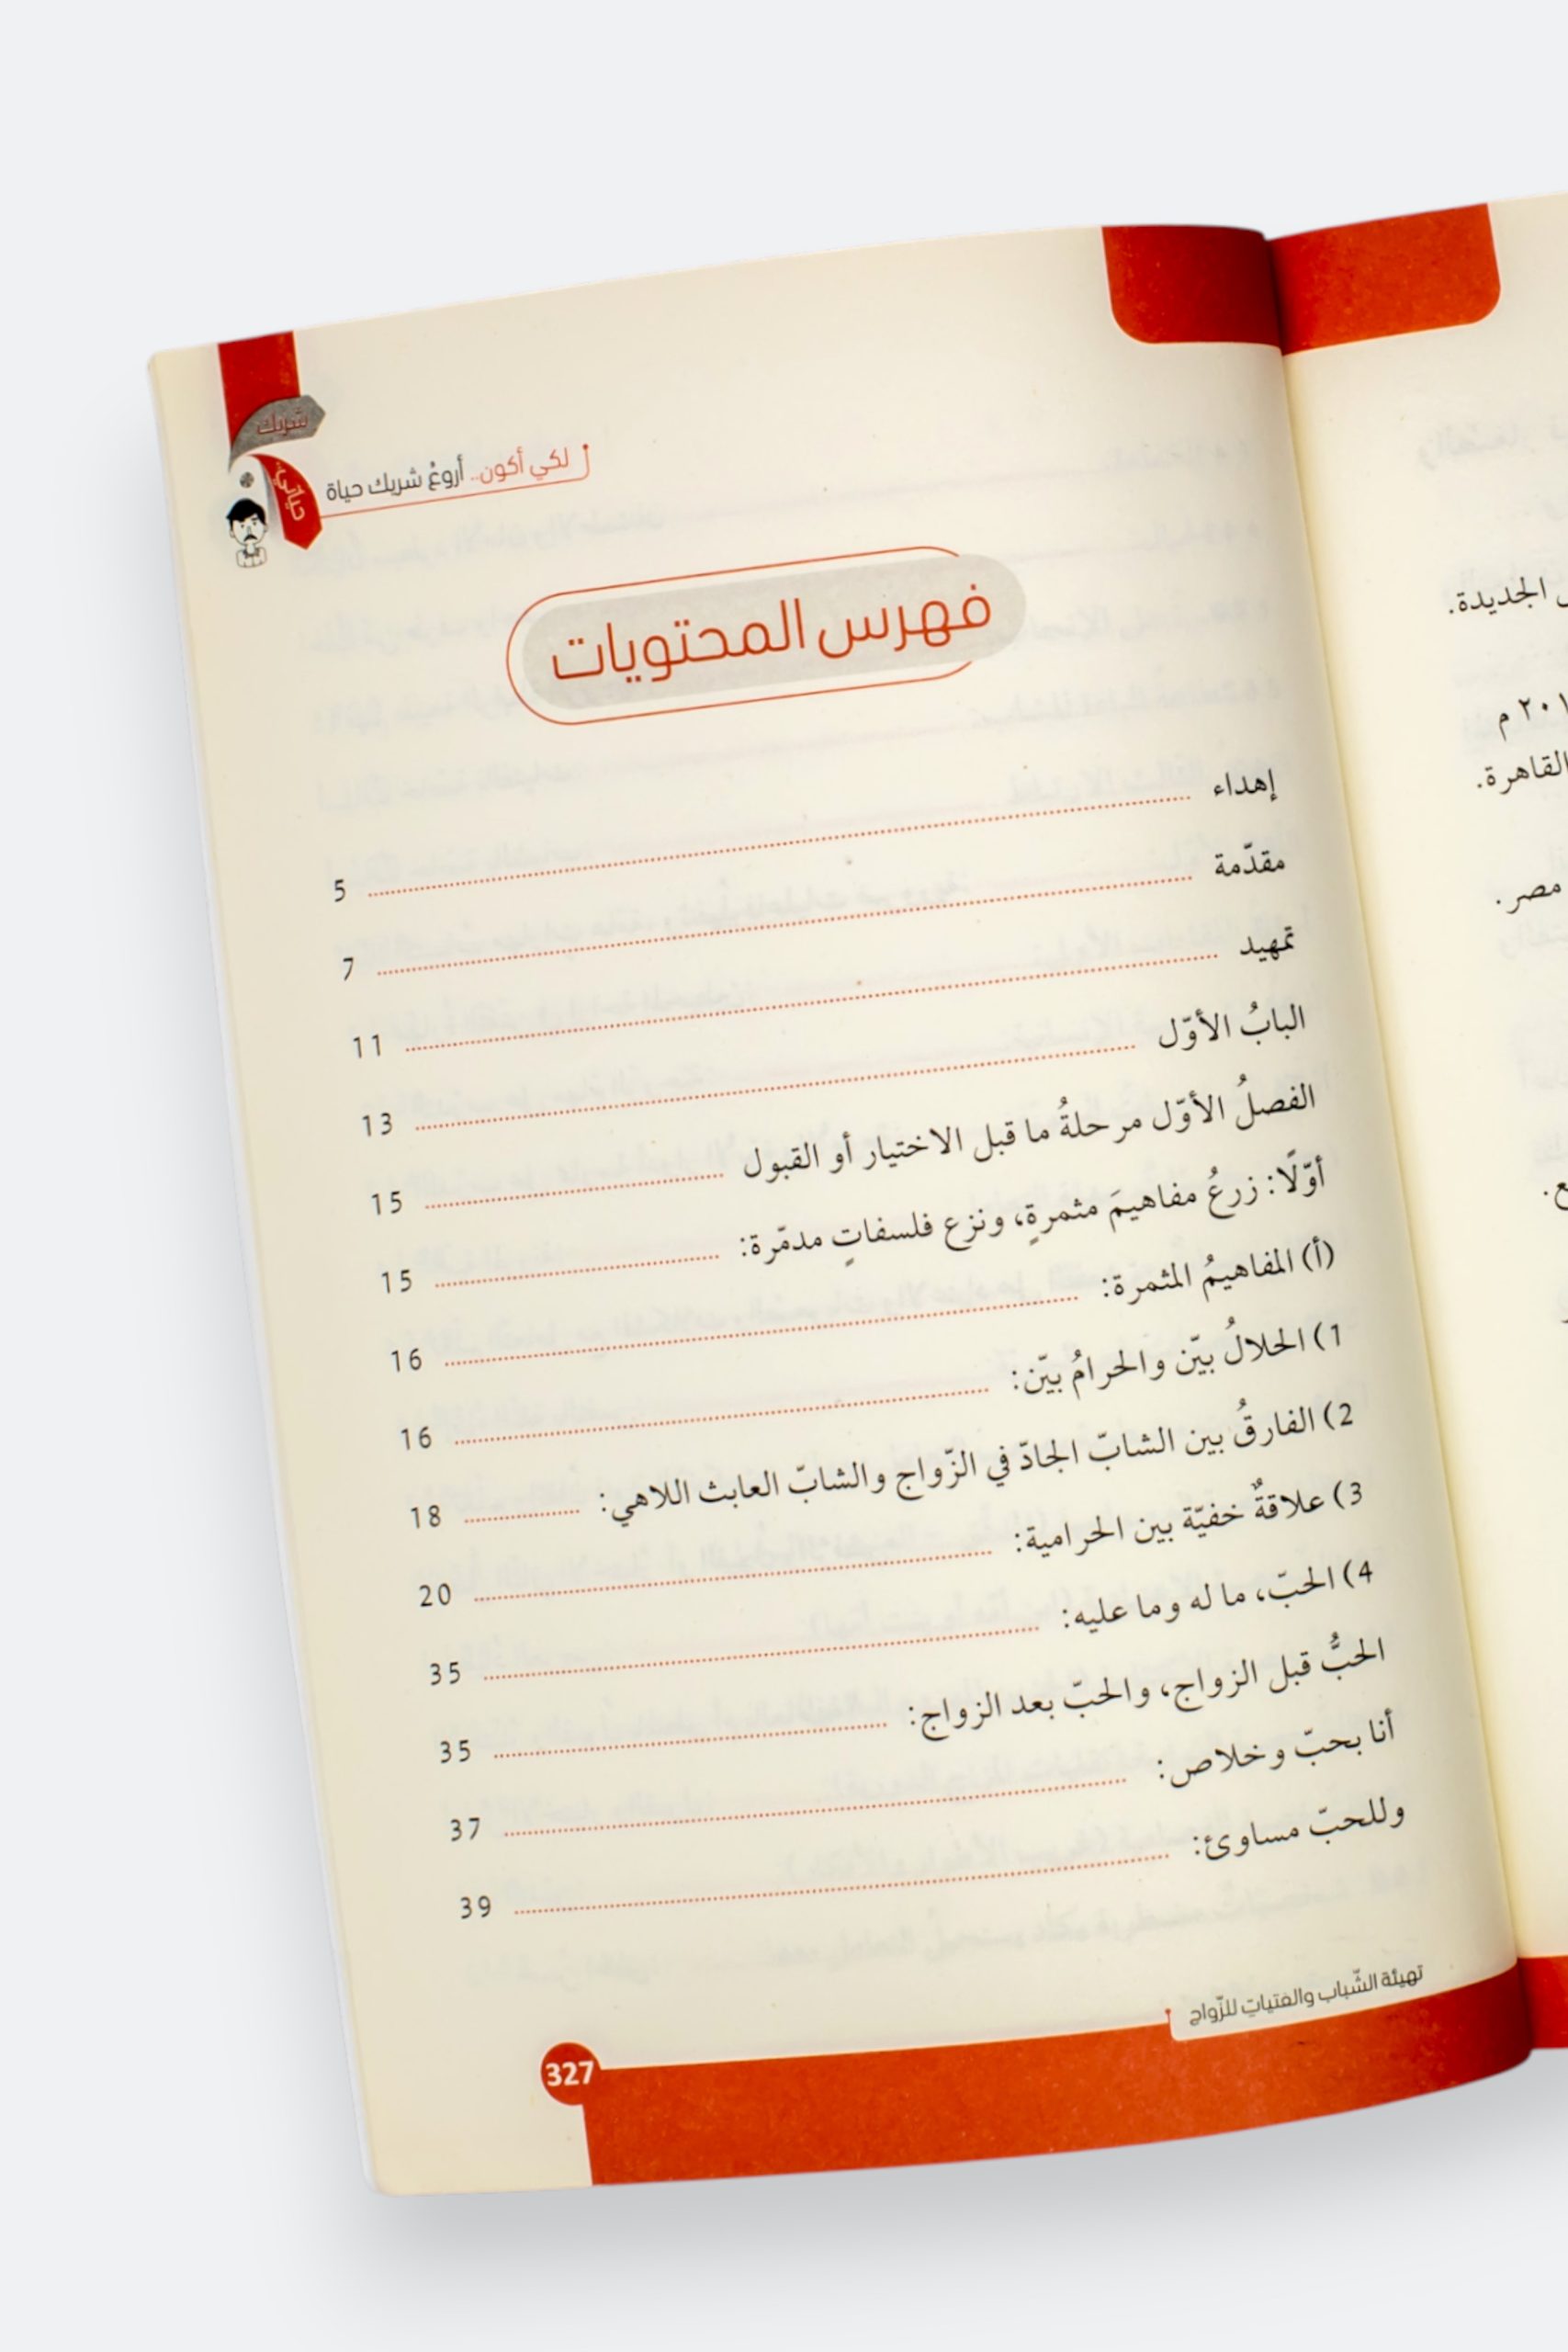 شريك
حياتي
لكي أكون.. أروعُ شريك حياة
فهرس المحتويات
إهداء 5
مقدّمة 7
تمهيد 11
البابُ الأوّل 13
الفصلُ الأوّل مرحلةُ ما قبل الاختيار أو القبول 15
أوّلًا: زرعُ مفاهيمَ مثمرةٍ، ونزع فلسفاتٍ مدمّرة: 15
(أ) المفاهيمُ المثمرة: 16
1) الحلالُ بيّن والحرامُ بيّن: 16
2) الفارقُ بين الشابّ الجادّ في الزّواج والشابّ العابث اللاهي: 18
3) علاقةٌ خفيّة بين الحرامية: 20
4) الحبّ، ما له وما عليه: 35
الحبُّ قبل الزواج، والحبّ بعد الزواج: 35
أنا بحبّ وخلاص: 37
وللحبّ مساوئ: 39
تهيئة الشّباب والفتيات للزّواج
327
الجديدة.
م
القاهرة.
مصر.